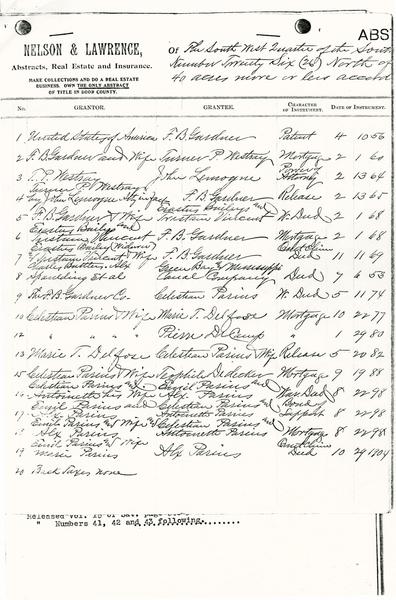 NELSON & LAWRENCE,
Abstracts, Real Estate and Insurance.
MAKE COLLECTIONS AND DO A REAL ESTATE
BUSINESS. OWN THE ONLY ABSTRACT
OF TITLE IN DOOR COUNTY.
ABST
OF The South West Quarter of the South
Number Twenty Six (26) North of
40 acres more or less accord
No. GRANTOR. GRANTEE. CHARACTER OF INSTRUMENT. DATE OF INSTRUMENT.
1 United States of America F. B. Gardner Patent 4 10 56
2 F. B. Gardner and Wife Turner P. Westray Mortgage 2 1 60
3 T. P. Westray John Lemoyne Power of Attorney 2 13 64
Turner P. Westray
4 by John Lemoyne Atty in fact F. B. Gardner Release 2 13 65
5 F. B. Gardner & Wife W. Deed 2 1 68
6 F. B. Gardner Mortgage 2 1 68
7 & Wife F. B. Gardner Quit Claim Deed 11 11 67
Green Bay & Mississippi
8 Spaulding Et al Canal Company Deed 7 6 53
9 The F. B. Gardner Co. Celestian Parins W. Deed 5 11 74
10 Celestian Parins & Wife Marie T. Delfose Mortgage 10 22 77
12 " " " " Pierre DeCamp " 1 29 80
13 Marie T. Delfose Celestian Parins Wife Release 5 20 82
15 Celestian Parins & Wife Teophiel Dedecker Mortgage 9 19 88
Celestian Parins and Emiel Parins and
16 Antoinette his Wife Alex. Parins War. Deed 8 22 98
Emiel Parins and Celestian Parins and Bond
17 Alex Parins Antoinette Parins Support 8 22 98
Emiel Parins and Wife and Celestian Parins and
18 Alex Parins Antoinette Parins Mortgage 8 22 98
Emiel Parins and Wife Quit Claim
19 Marie Parins Alx Parins Deed 10 29 1904
20 Back Taxes none
" Numbers 41, 42 and 43 following.........